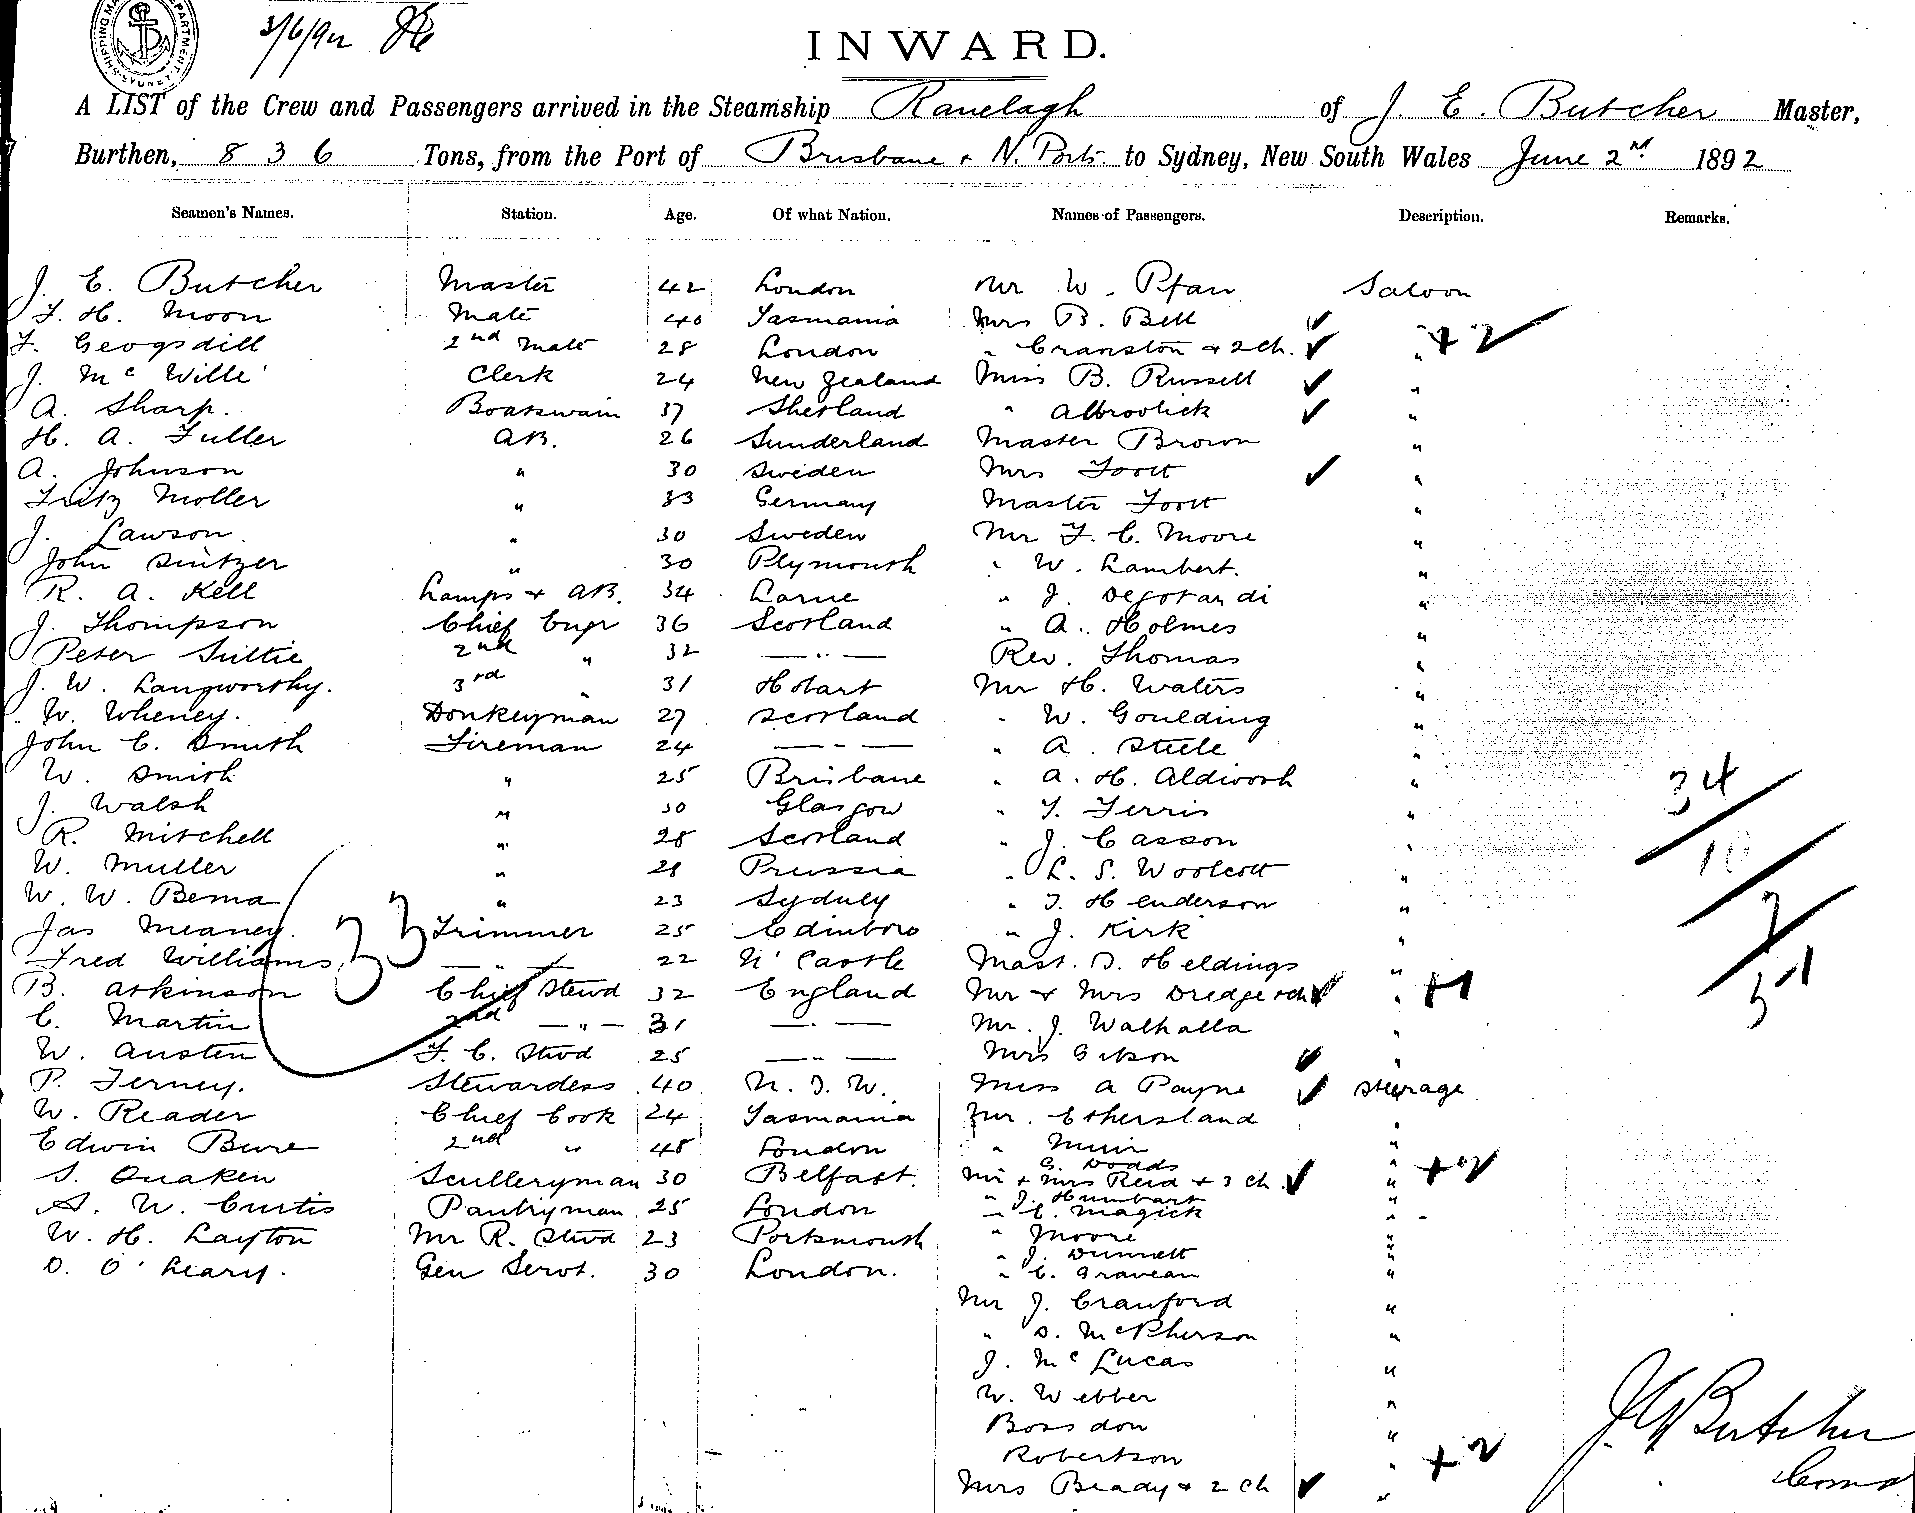 3/6/92
INWARD.
A LIST of the Crew and Passengers arrived in the Steamship Ranelagh of J. E. Butcher Master,
Burthen, 836 Tons, from the Port of Brisbane + N. Ports to Sydney, New South Wales June 2nd 1892
Seamen's Names. Station. Age. Of what Nation. Names of Passengers. Description. Remarks.
J. E. Butcher Master 42 London Mr W. Pfan Saloon
F. H. Moon Mate 40 Tasmania Mrs B. Bell "
F. Geogsdill 2nd Mate 28 London " Cranston + 2 Ch. " +2
J. Mc Wille Clerk 24 New Zealand Miss B. Russell "
A. Sharp. Boatswain 37 Shetland " "
H. A. Fuller AB. 26 Sunderland Master Brown "
A. Johnson " 30 Sweden Mrs Foott "
Fritz Moller " 33 Germany Master Foott "
J. Lawson. " 30 Sweden Mr F. C. Moore "
John Sintzer " 30 Plymouth " W. Lambert. "
R. A. Kell Lamps + AB. 34 Larne " J. Degotardi "
J. Thompson Chief Engr 36 Scotland " A. Holmes "
Peter Suttie 2nd " 32 — " — Rev. Thomas "
J. W. Langworthy. 3rd " 31 Hobart Mr H. Waters "
W. Wheney. Donkeyman 27 Scotland " W. Goulding "
John C. Smith Fireman 24 — " — " A. Steele "
W. Smith " 25 Brisbane " A. H. Aldworth "
J. Walsh " 30 Glasgow " T. Ferris " 34
R. Mitchell " 28 Scotland " J. Casson "
W. Muller " 28 Prussia " L. S. Woolcott " 10
W. W. Bema " 23 Sydney " T. Henderson "
Jas Meaney. Trimmer 25 Edinboro " J. Kirk " 7
Fred Williams — " — 22 N' Castle Mast. S. Heldings "
B. Atkinson Chief Stewd 32 England Mr + Mrs Dredge + ch " +1 51
C. Martin 2nd — " — 31 — " — Mr. J. Walhalla "
W. Austen F. C. Stwd 25 — " — Mrs Gibson "
P. Ferney. Stewardess 40 N. S. W. Miss A Payne Steerage
W. Reader Chief Cook 24 Tasmania Mr. Ethersland "
Edwin Bure 2nd " 48 London " Muir "
G. Dodds "
S. Quaken Sculleryman 30 Belfast. Mr + Mrs Reid + 3 Ch. "
" J. Humbart "
A. W. Curtis Pantryman 25 London " C. Magick "
W. H. Layton Mr R. Stwd 23 Portsmouth " Moore "
" J. Dunnett "
D. O'Leary. Gen Servt. 30 London. " C. Gravean "
Mr J. Cranford "
" D. McPherson "
J. Mc Lucas "
W. Webber "
Bossdon "
Robertson " +2
Mrs Beady + 2 Ch "
J E Butcher